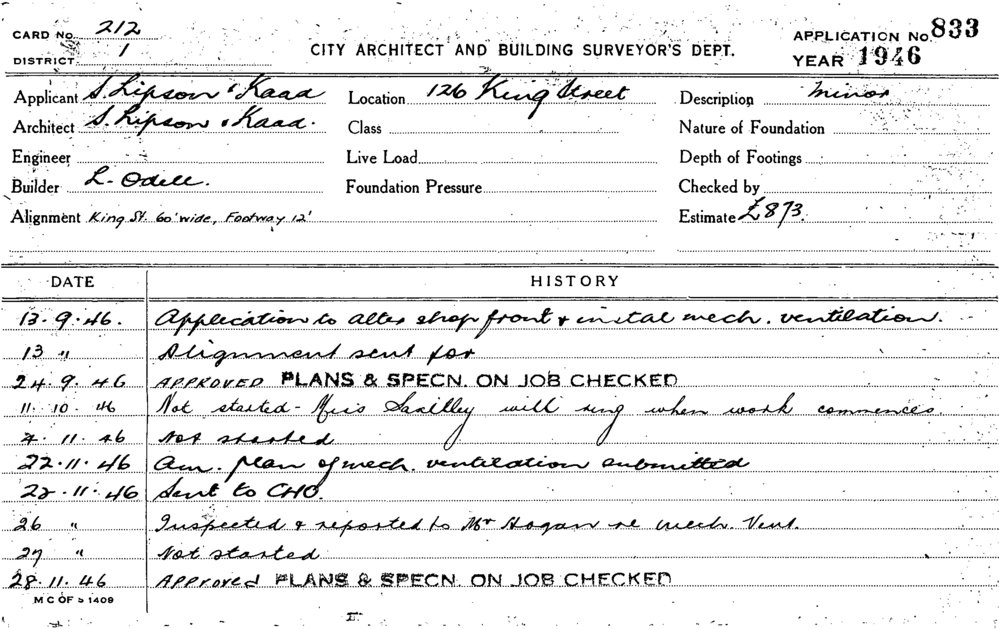 CARD No. 212
DISTRICT 1
CITY ARCHITECT AND BUILDING SURVEYOR'S DEPT.
APPLICATION No. 833
YEAR 1946
Applicant S. Lipson & Kaad Location 126 King Street Description Minor
Architect S. Lipson & Kaad. Class Nature of Foundation
Engineer Live Load Depth of Footings
Builder L. Odell. Foundation Pressure Checked by
Alignment King St. 60' wide, Footway 12' Estimate £873.
DATE HISTORY
13.9.46. Application to alter shop front & instal mech. ventilation.
13 " Alignment sent for
24.9.46 APPROVED PLANS & SPECN. ON JOB CHECKED
11.10.46 Not started - Miss will ring when work commences.
4.11.46 Not started
22.11.46 Am. plan of mech. ventilation submitted
22.11.46 Sent to CHO.
26 " Inspected & reported to Mr Hogan re mech. Vent.
27 " Not started
28.11.46 APPROVED PLANS & SPECN. ON JOB CHECKED
M C OF S 1409